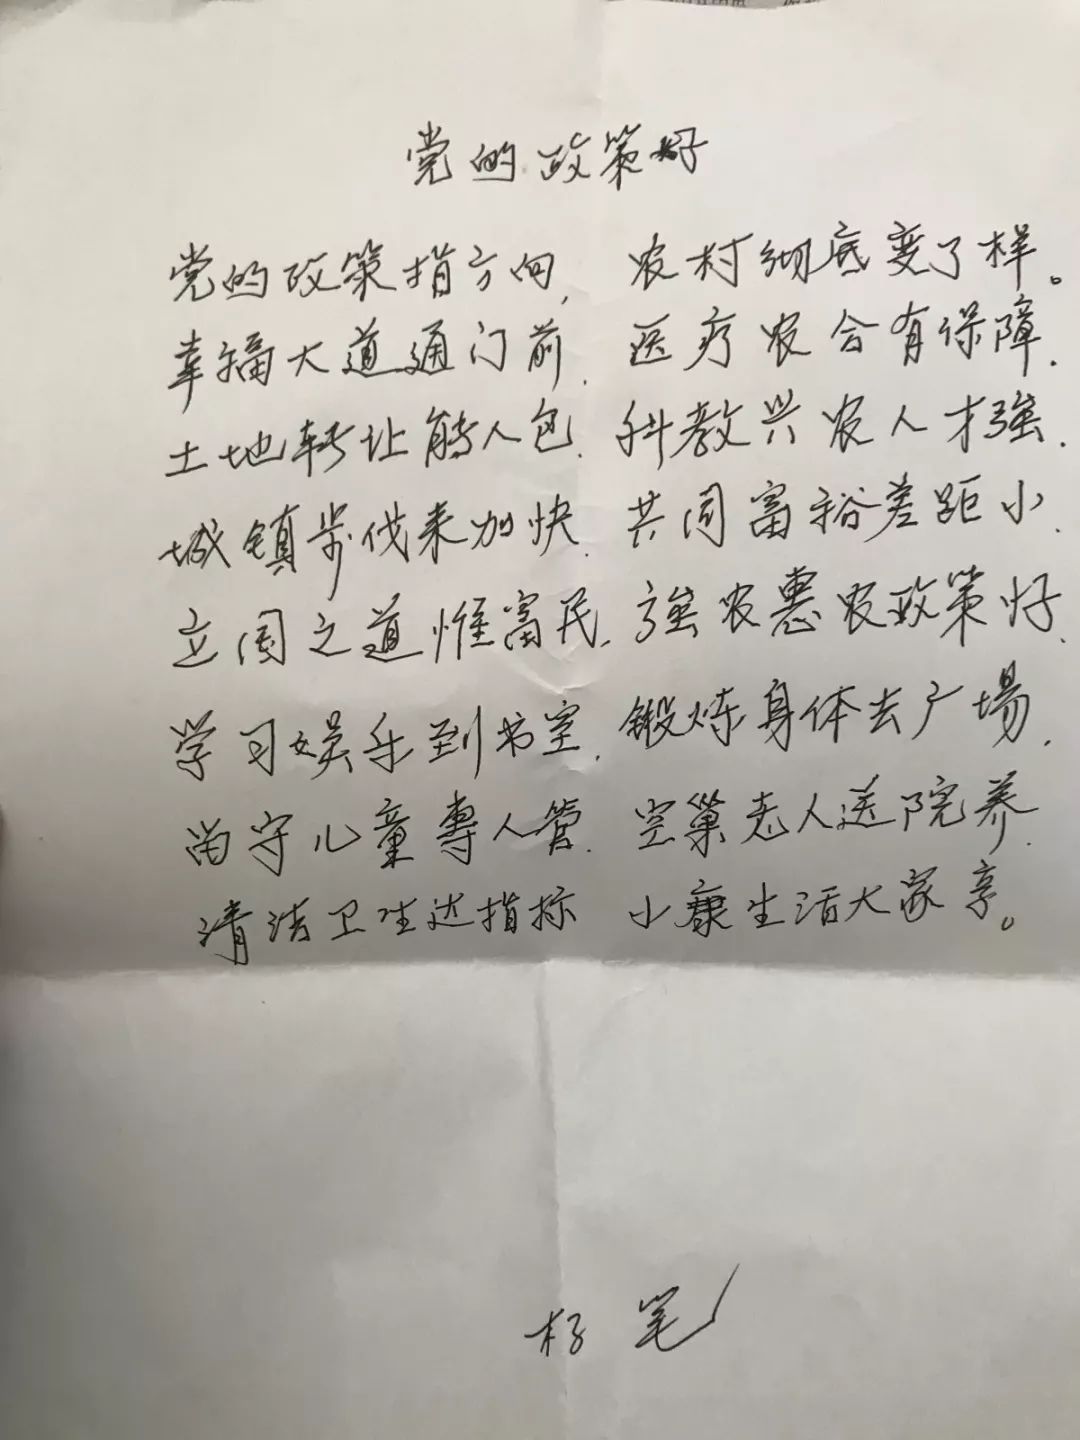 党的政策好
党的政策指方向, 农村彻底变了样。
幸福大道通门前. 医疗农合有保障.
土地转让能人包. 科教兴农人才强.
城镇步伐来加快. 共同富裕差距小.
立国之道惟富民. 强农惠农政策好.
学习娱乐到书室. 锻炼身体去广場.
留守儿童專人管. 空巢老人送院养
清洁卫生达指标 小康生活大家享。
笔